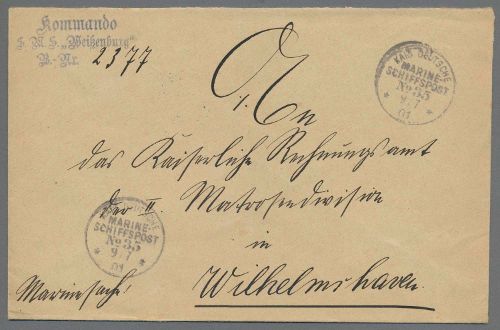 Kommando
S. M. S. „Weißenburg“
B.-Nr. 2377
An
das Kaiserliche Rechnungsamt
der II. Matrosendivision
in
Wilhelmshaven.
Marinesache!
KAIS. DEUTSCHE
MARINE-
SCHIFFSPOST
No 35
9.7
01
MARINE-
SCHIFFSPOST
No 35
9.7
01